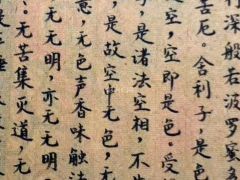 深般若波罗蜜多
苦厄。舍利子，是色
是空，空即是色。受
子，是诸法空相，不
，是故空中无色，
意，无色声香味触法
无无明，亦无无明
无苦集灭道，无